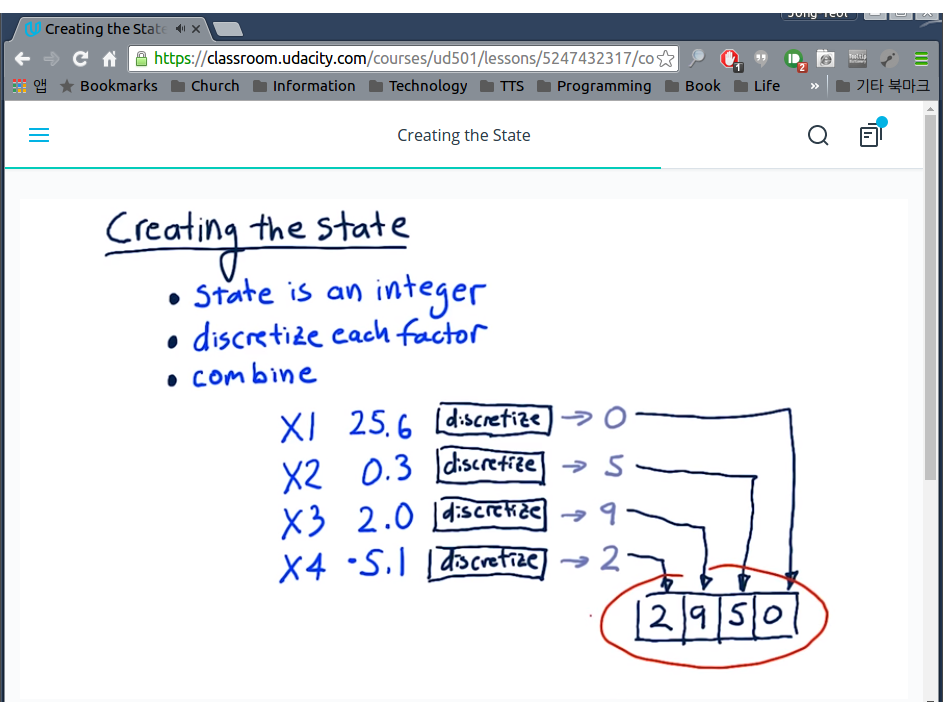 Jong Yeol
Creating the State
https://classroom.udacity.com/courses/ud501/lessons/5247432317/co
1
2
앱 Bookmarks Church Information Technology TTS Programming Book Life » 기타 북마크
Creating the State
Creating the state
• State is an integer
• discretize each factor
• combine
X1 25.6 discretize → 0
X2 0.3 discretize → 5
X3 2.0 discretize → 9
X4 -5.1 discretize → 2
2 9 5 0